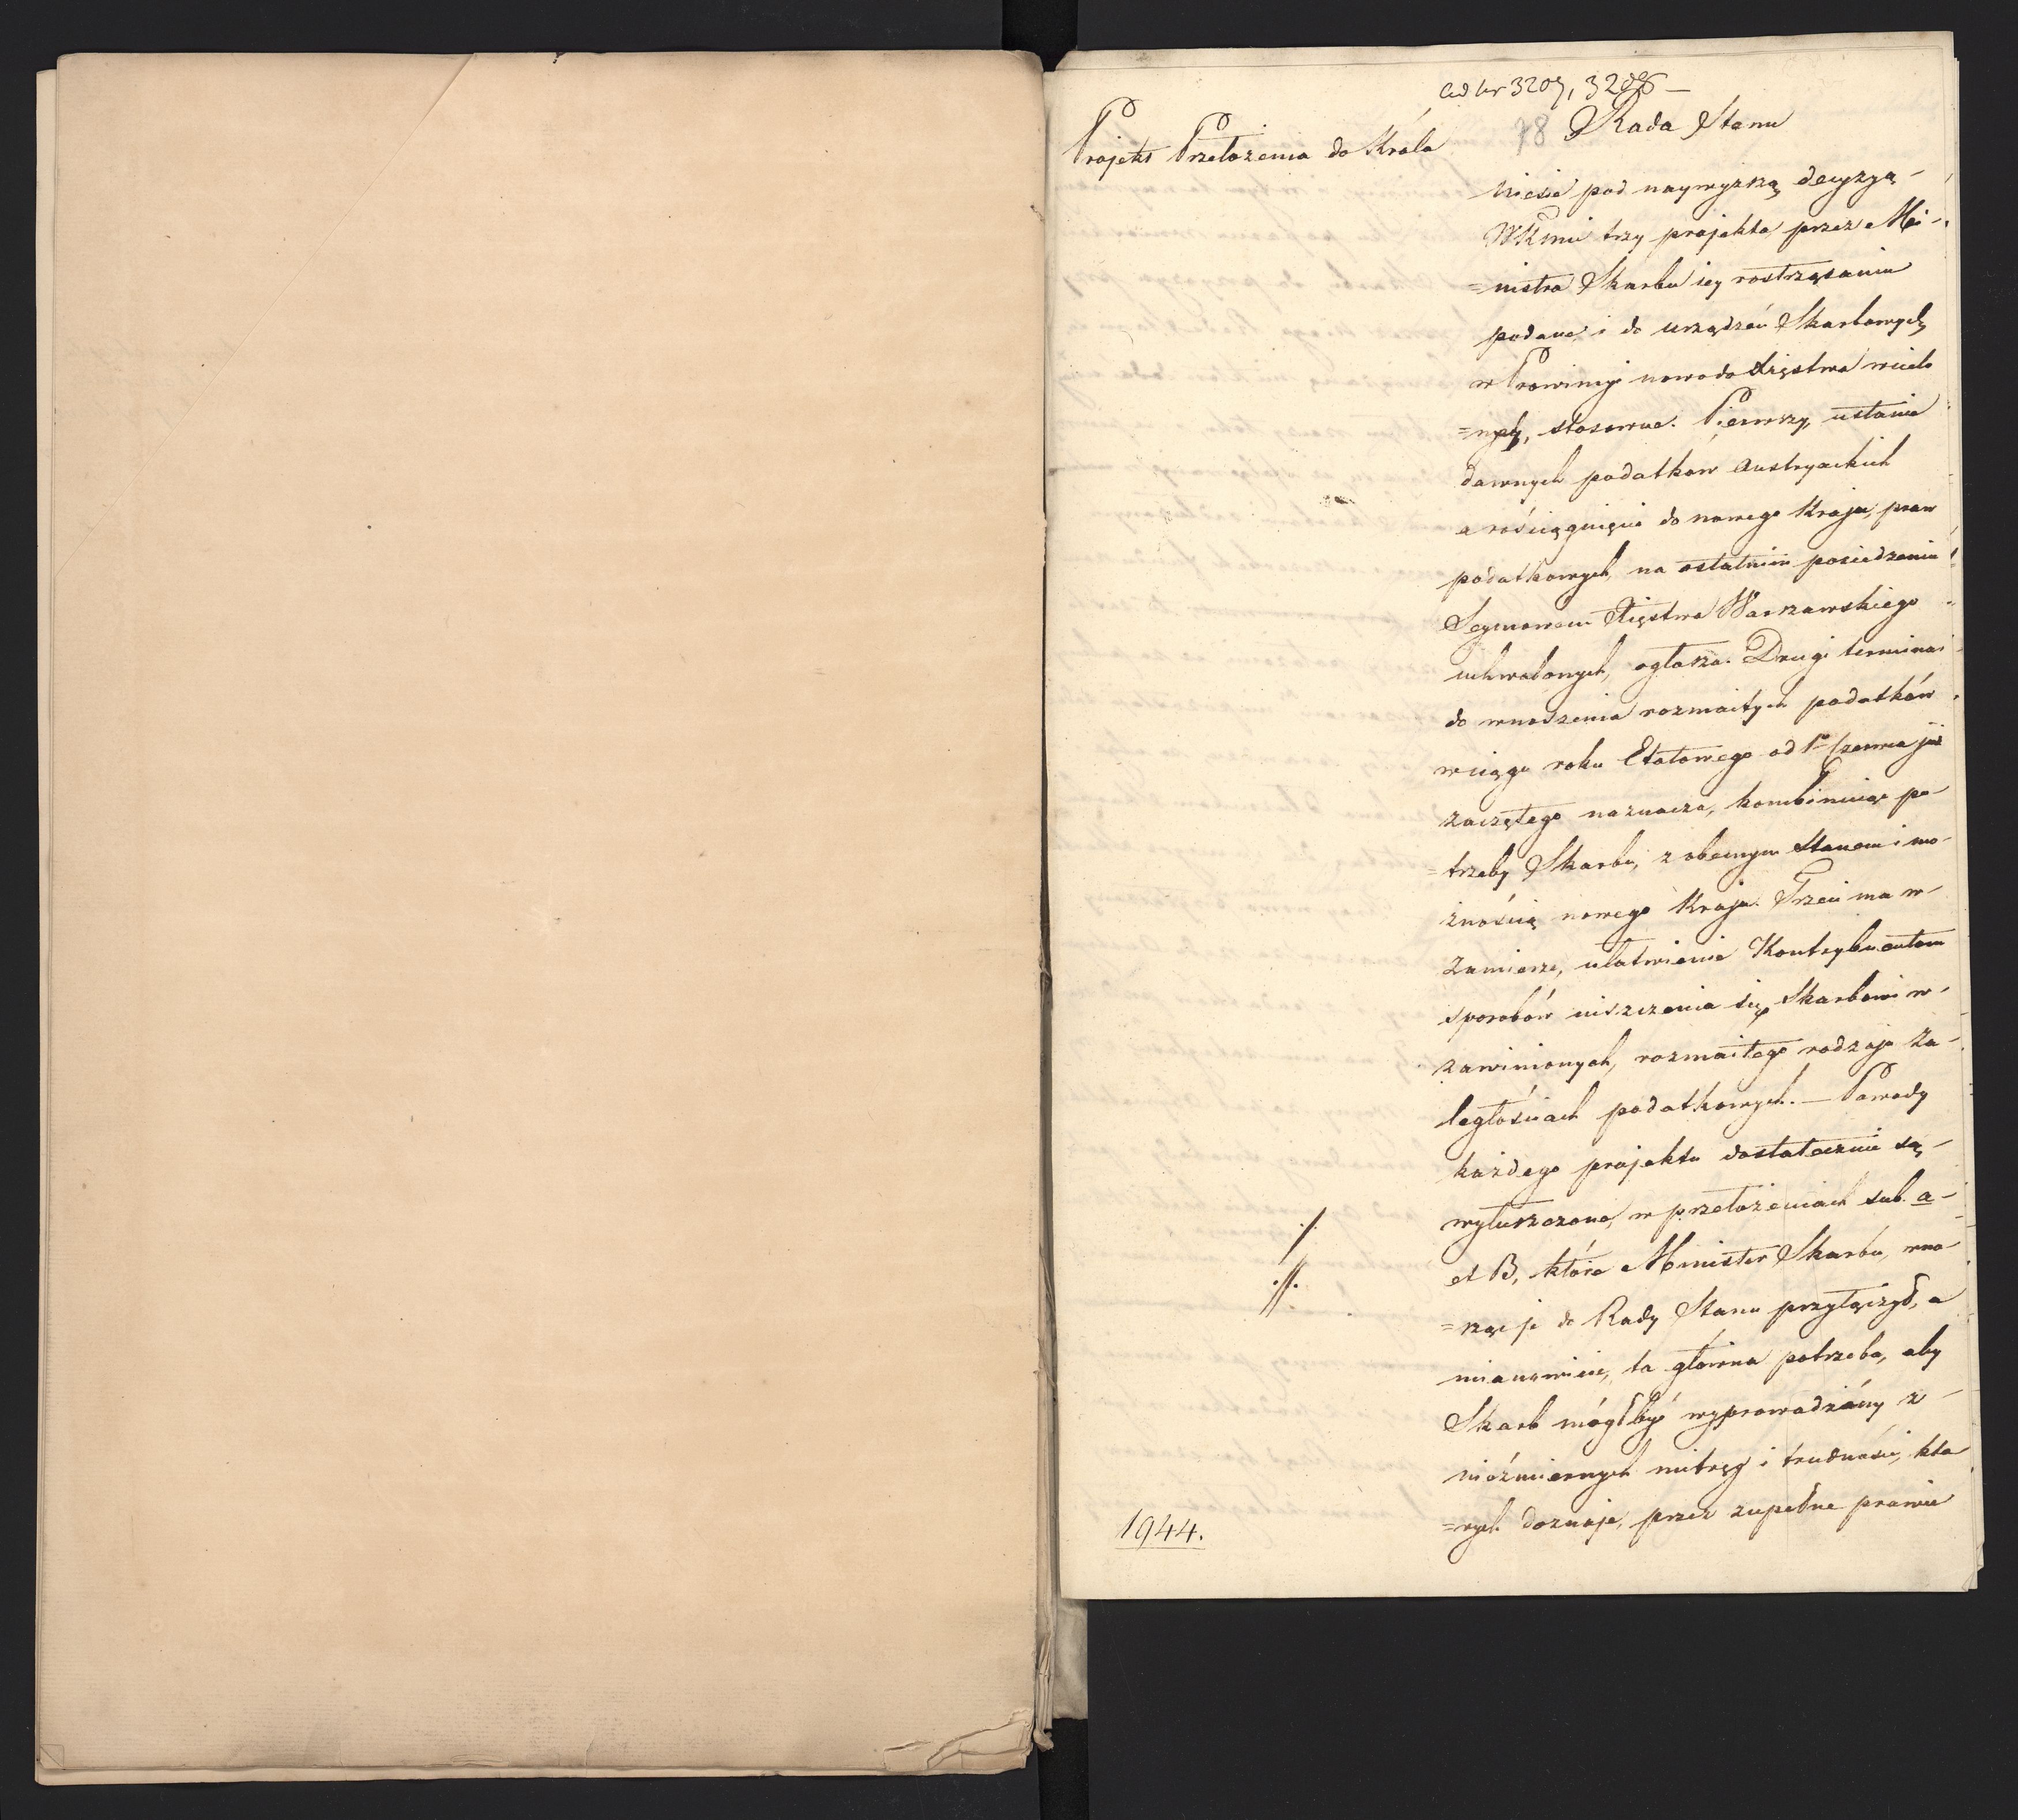 ad Nr 3207, 3208 —
78 Rada Stanu
Projekt Przełożenia do Króla
Niesie pod naywyższą decyzyą
WKMci trzy projekta przez Mi-
=nistra Skarbu iey rostrząsaniu
podane, i do urządzeń Skarbowych,
w Prowincyi nowo do Xięstwa wcielo
=nych, stosowne. Pierwszy, ustanie
dawnych podatków Austryackich
a rościągnięcie do nowego Kraju, praw
podatkowych, na ostatnim posiedzeniu
Seymowem Xięstwa Warszawskiego
uchwalonych, ogłasza. Drugi termina
do wnoszenia rozmaitych podatków
w ciągu roku Etatowego od 1º Czerwca już
zaczętego naznacza, kombinuiąc po
=trzeby Skarbu, z obecnym Stanem i mo-
żnością nowego Kraju. Trzeci ma w
zamiarze, ułatwienie Kontrybuentom
sposobów uiszczenia się Skarbowi w
zawinionych, rozmaitego rodzaju za-
ległościach podatkowych. — Powody
każdego projektu dostatecznie są
wyłuszczone, w przełożeniach sub. a
./. et B, które Minister Skarbu, wno
.//. =sząc je do Rady Stanu przyłączył, a
mianowicie, ta główna potrzeba, aby
Skarb mógł być wyprowadzony z
niezmiernych mitręg i trudności, któ
=rych doznaje, przez zupełne prawie
1944.